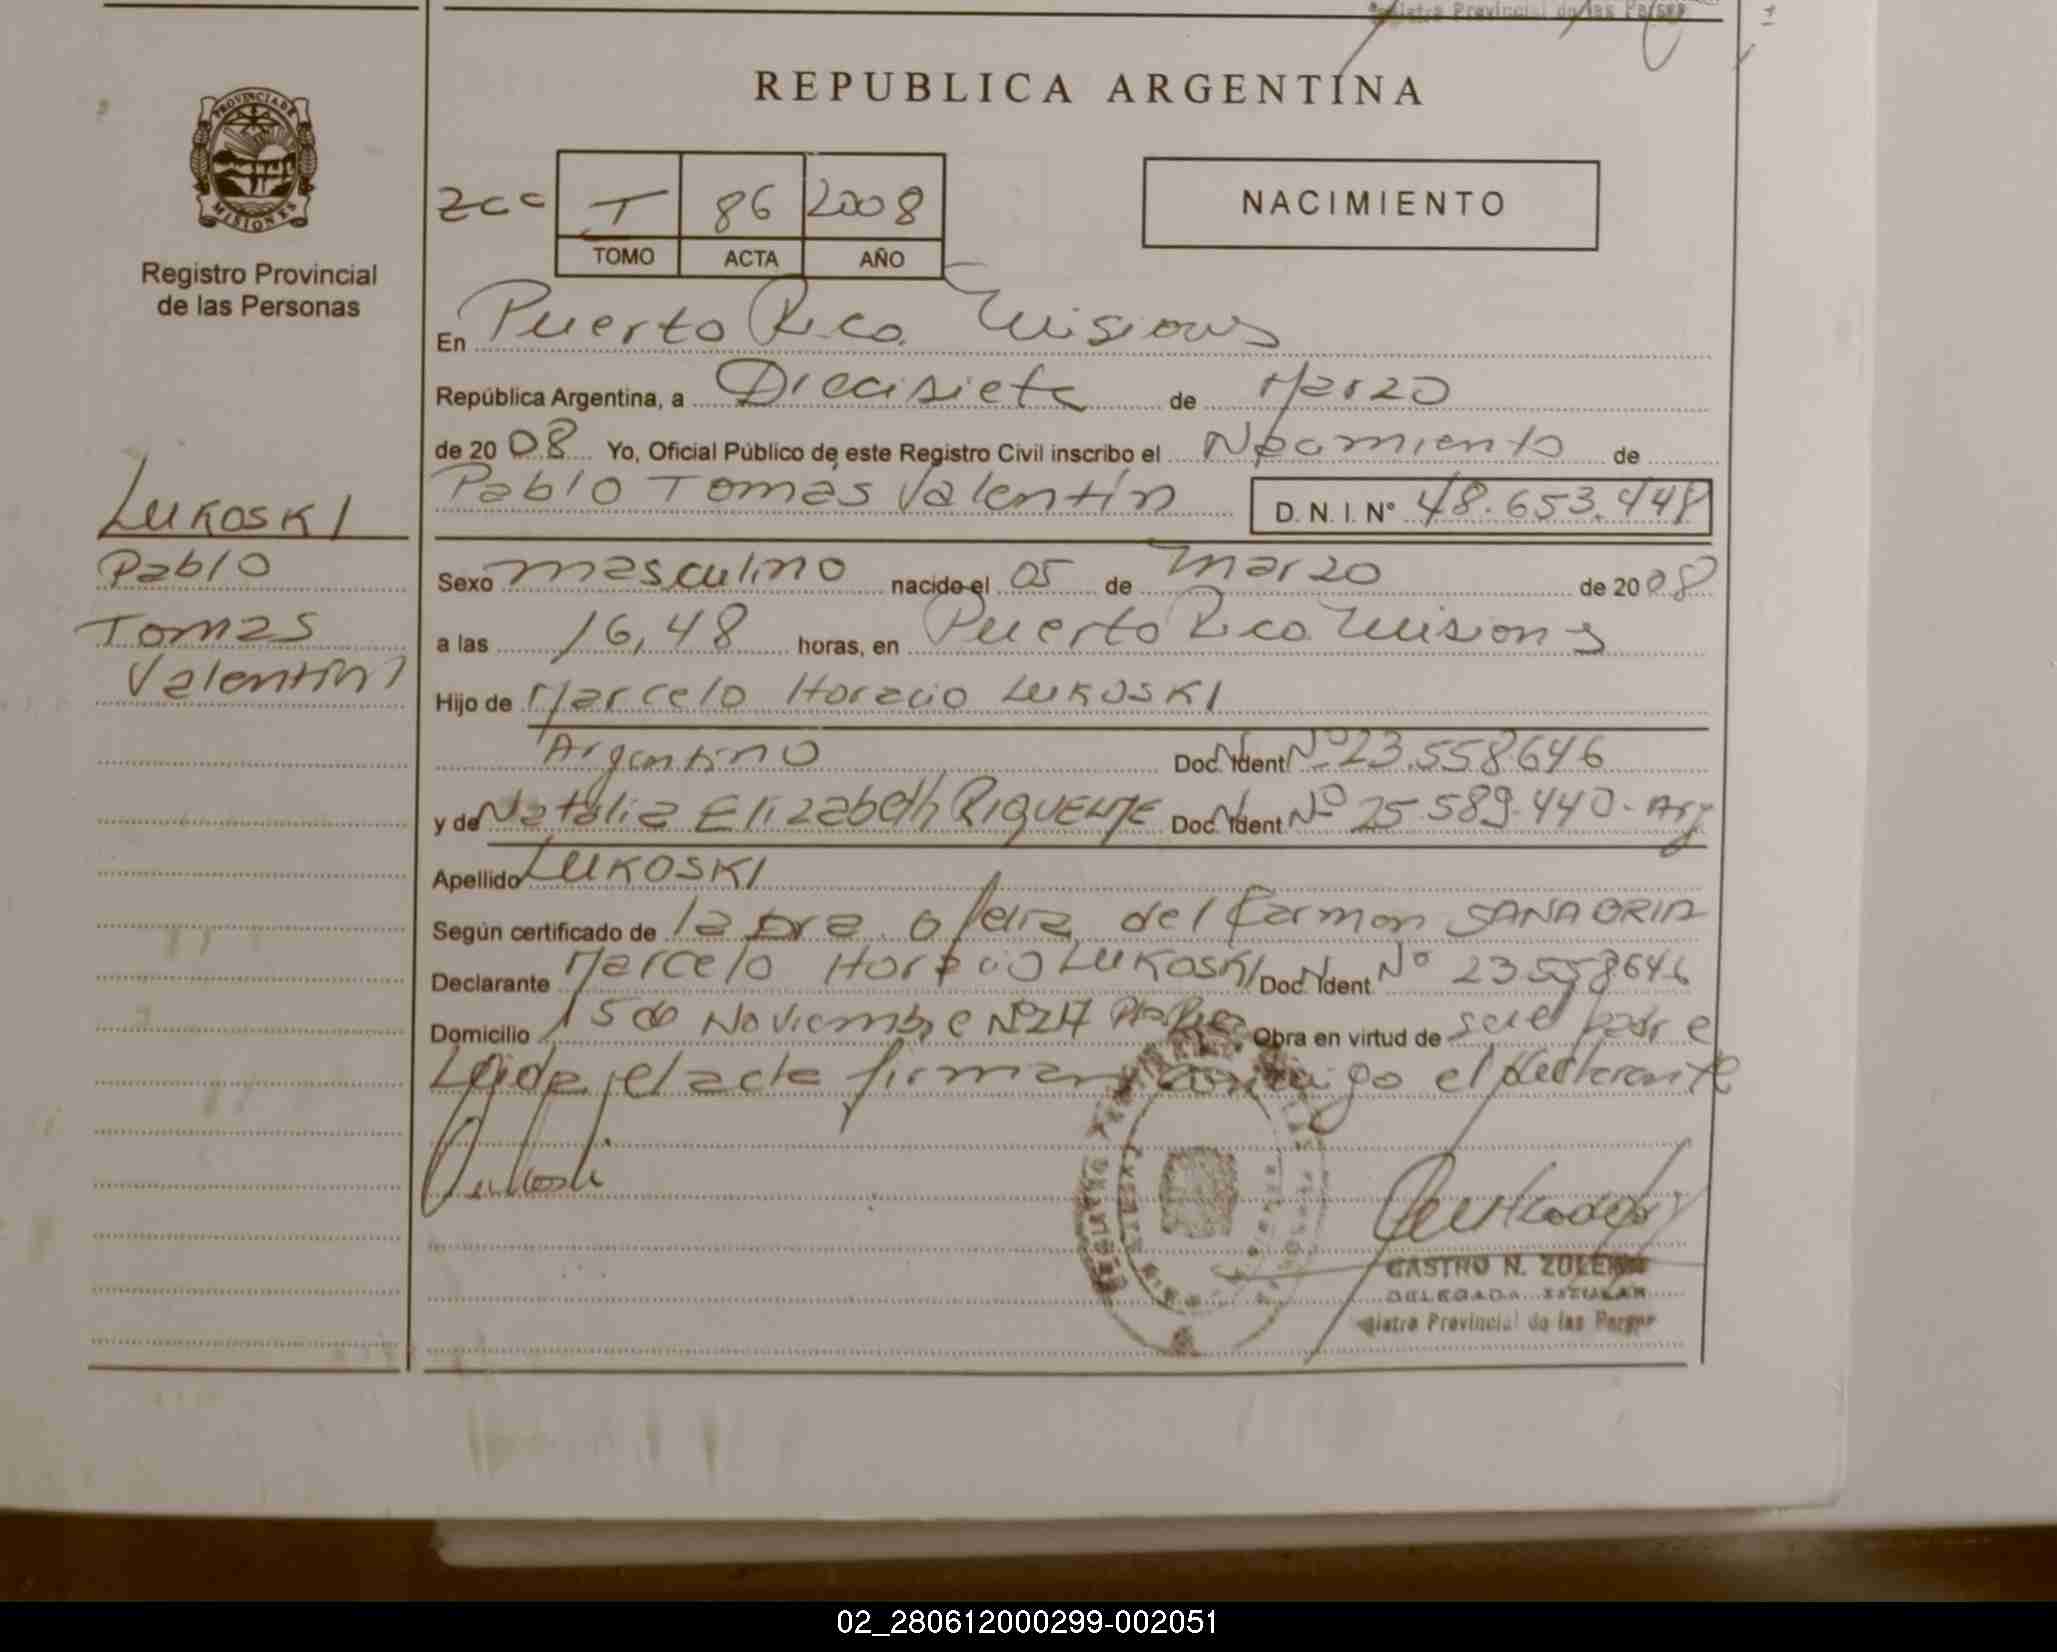 Registro Provincial de las Personas
REPUBLICA ARGENTINA
PROVINCIA DE MISIONES
Registro Provincial
de las Personas
T 86 2008
TOMO ACTA AÑO
NACIMIENTO
En Puerto Rico. Misiones
República Argentina, a Diecisiete de Marzo
de 2008 Yo, Oficial Público de este Registro Civil inscribo el Nacimiento de
Pablo Tomas Valentín D. N. I. N° 48.653.448
LUKOSKI
Pablo
Tomas
Valentín
Sexo masculino nacido el 05 de Marzo de 2008
a las 16,48 horas, en Puerto Rico Misiones
Hijo de Marcelo Horacio LUKOSKI
Argentino Doc. Ident Nº 23.558646
y de Natalia Elizabeth RIQUELME Doc. Ident Nº 25.589.440 - Arg
Apellido LUKOSKI
Según certificado de la Dra. Ofelia del Carmen SANABRIA
Declarante Marcelo Horacio LUKOSKI Doc. Ident Nº 23.558646
Domicilio 15 de Noviembre Nº 217 Pto Rico Obra en virtud de ser el padre
Leida el acta firman conmigo el declarante
CASTRO N. ZULEMA
DELEGADA TITULAR
Registro Provincial de las Personas
02_280612000299-002051